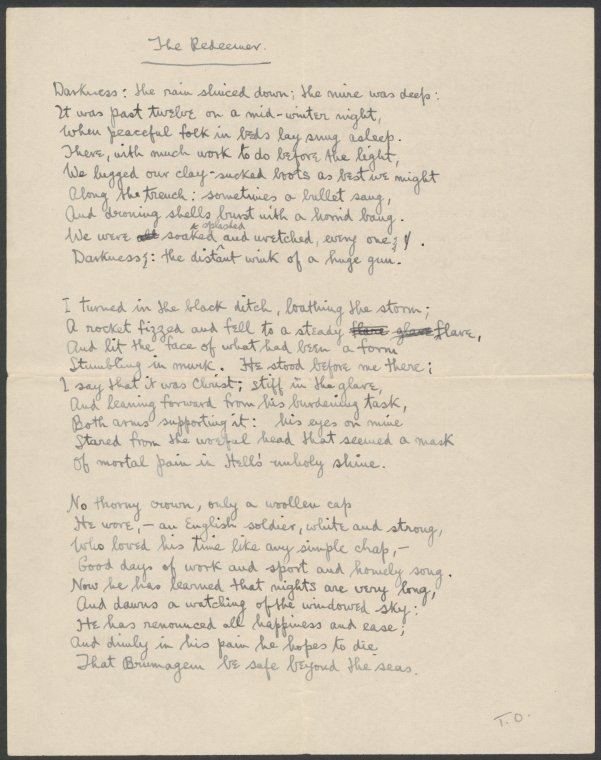 The Redeemer.
Darkness: the rain sluiced down; the mire was deep:
It was past twelve on a mid-winter night,
When peaceful folk in beds lay snug asleep.
There, with much work to do before the light,
We lugged our clay-sucked boots as best we might
Along the trench: sometimes a bullet sang,
And droning shells burst with a horrid bang.
splashed
We were soaked and wretched, every one;
Darkness: the distant wink of a huge gun.
I turned in the black ditch, loathing the storm;
A rocket fizzed and fell to a steady flare glare flare,
And lit the face of what had been a form
Stumbling in murk. He stood before me there;
I say that it was Christ; stiff in the glare,
And leaning forward from his burdening task,
Both arms supporting it: his eyes on mine
Stared from the woeful head that seemed a mask
Of mortal pain in Hell's unholy shine.
No thorny crown, only a woollen cap
He wore,— an English soldier, white and strong,
Who loved his time like any simple chap,—
Good days of work and sport and homely song.
Now he has learned that nights are very long,
And dawns a watching of the windowed sky:
He has renounced all happiness and ease;
And dimly in his pain he hopes to die
That Brumagem be safe beyond the seas.
T.O.